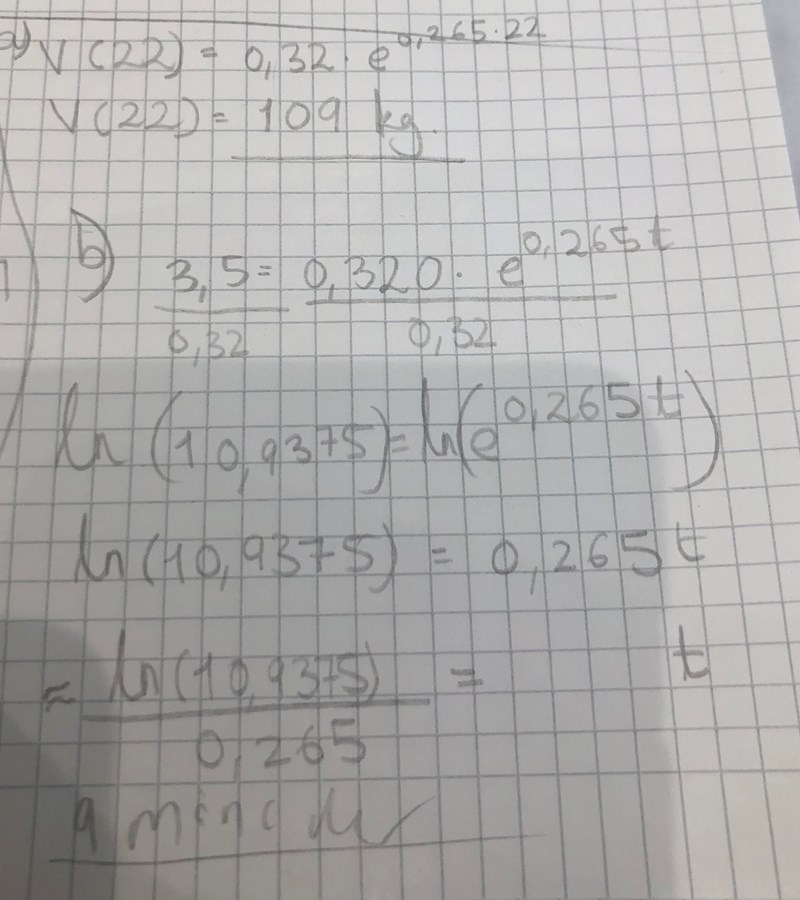 a) V(22) = 0,32 · e^0,265·22
V(22) = 109 kg.
b) 3,5 = 0,320 · e^0,265t
0,32 0,32
ln(10,9375) = ln(e^0,265t)
ln(10,9375) = 0,265t
≈ ln(10,9375) = t
0,265